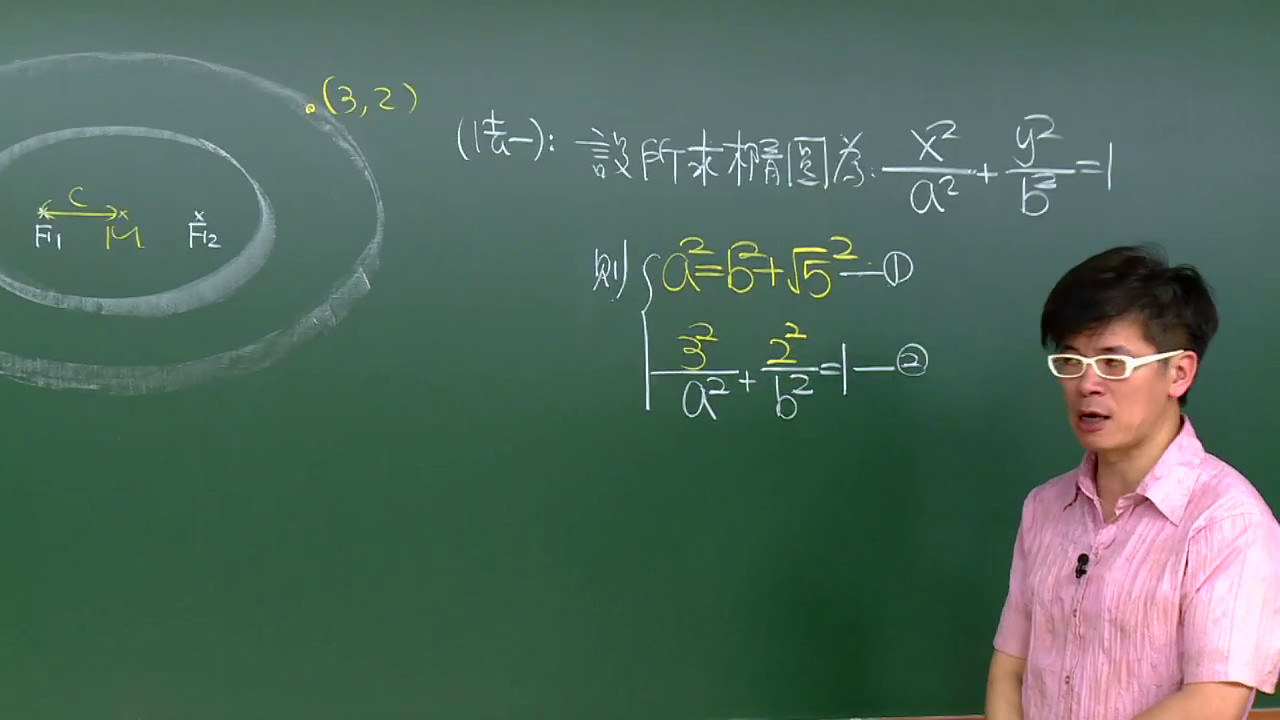 (3,2)
C
F₁ M F₂
(法一): 設所求橢圓為: x²/a² + y²/b² = 1
則 { a²=b²+√5² —①
3²/a² + 2²/b² = 1 —②